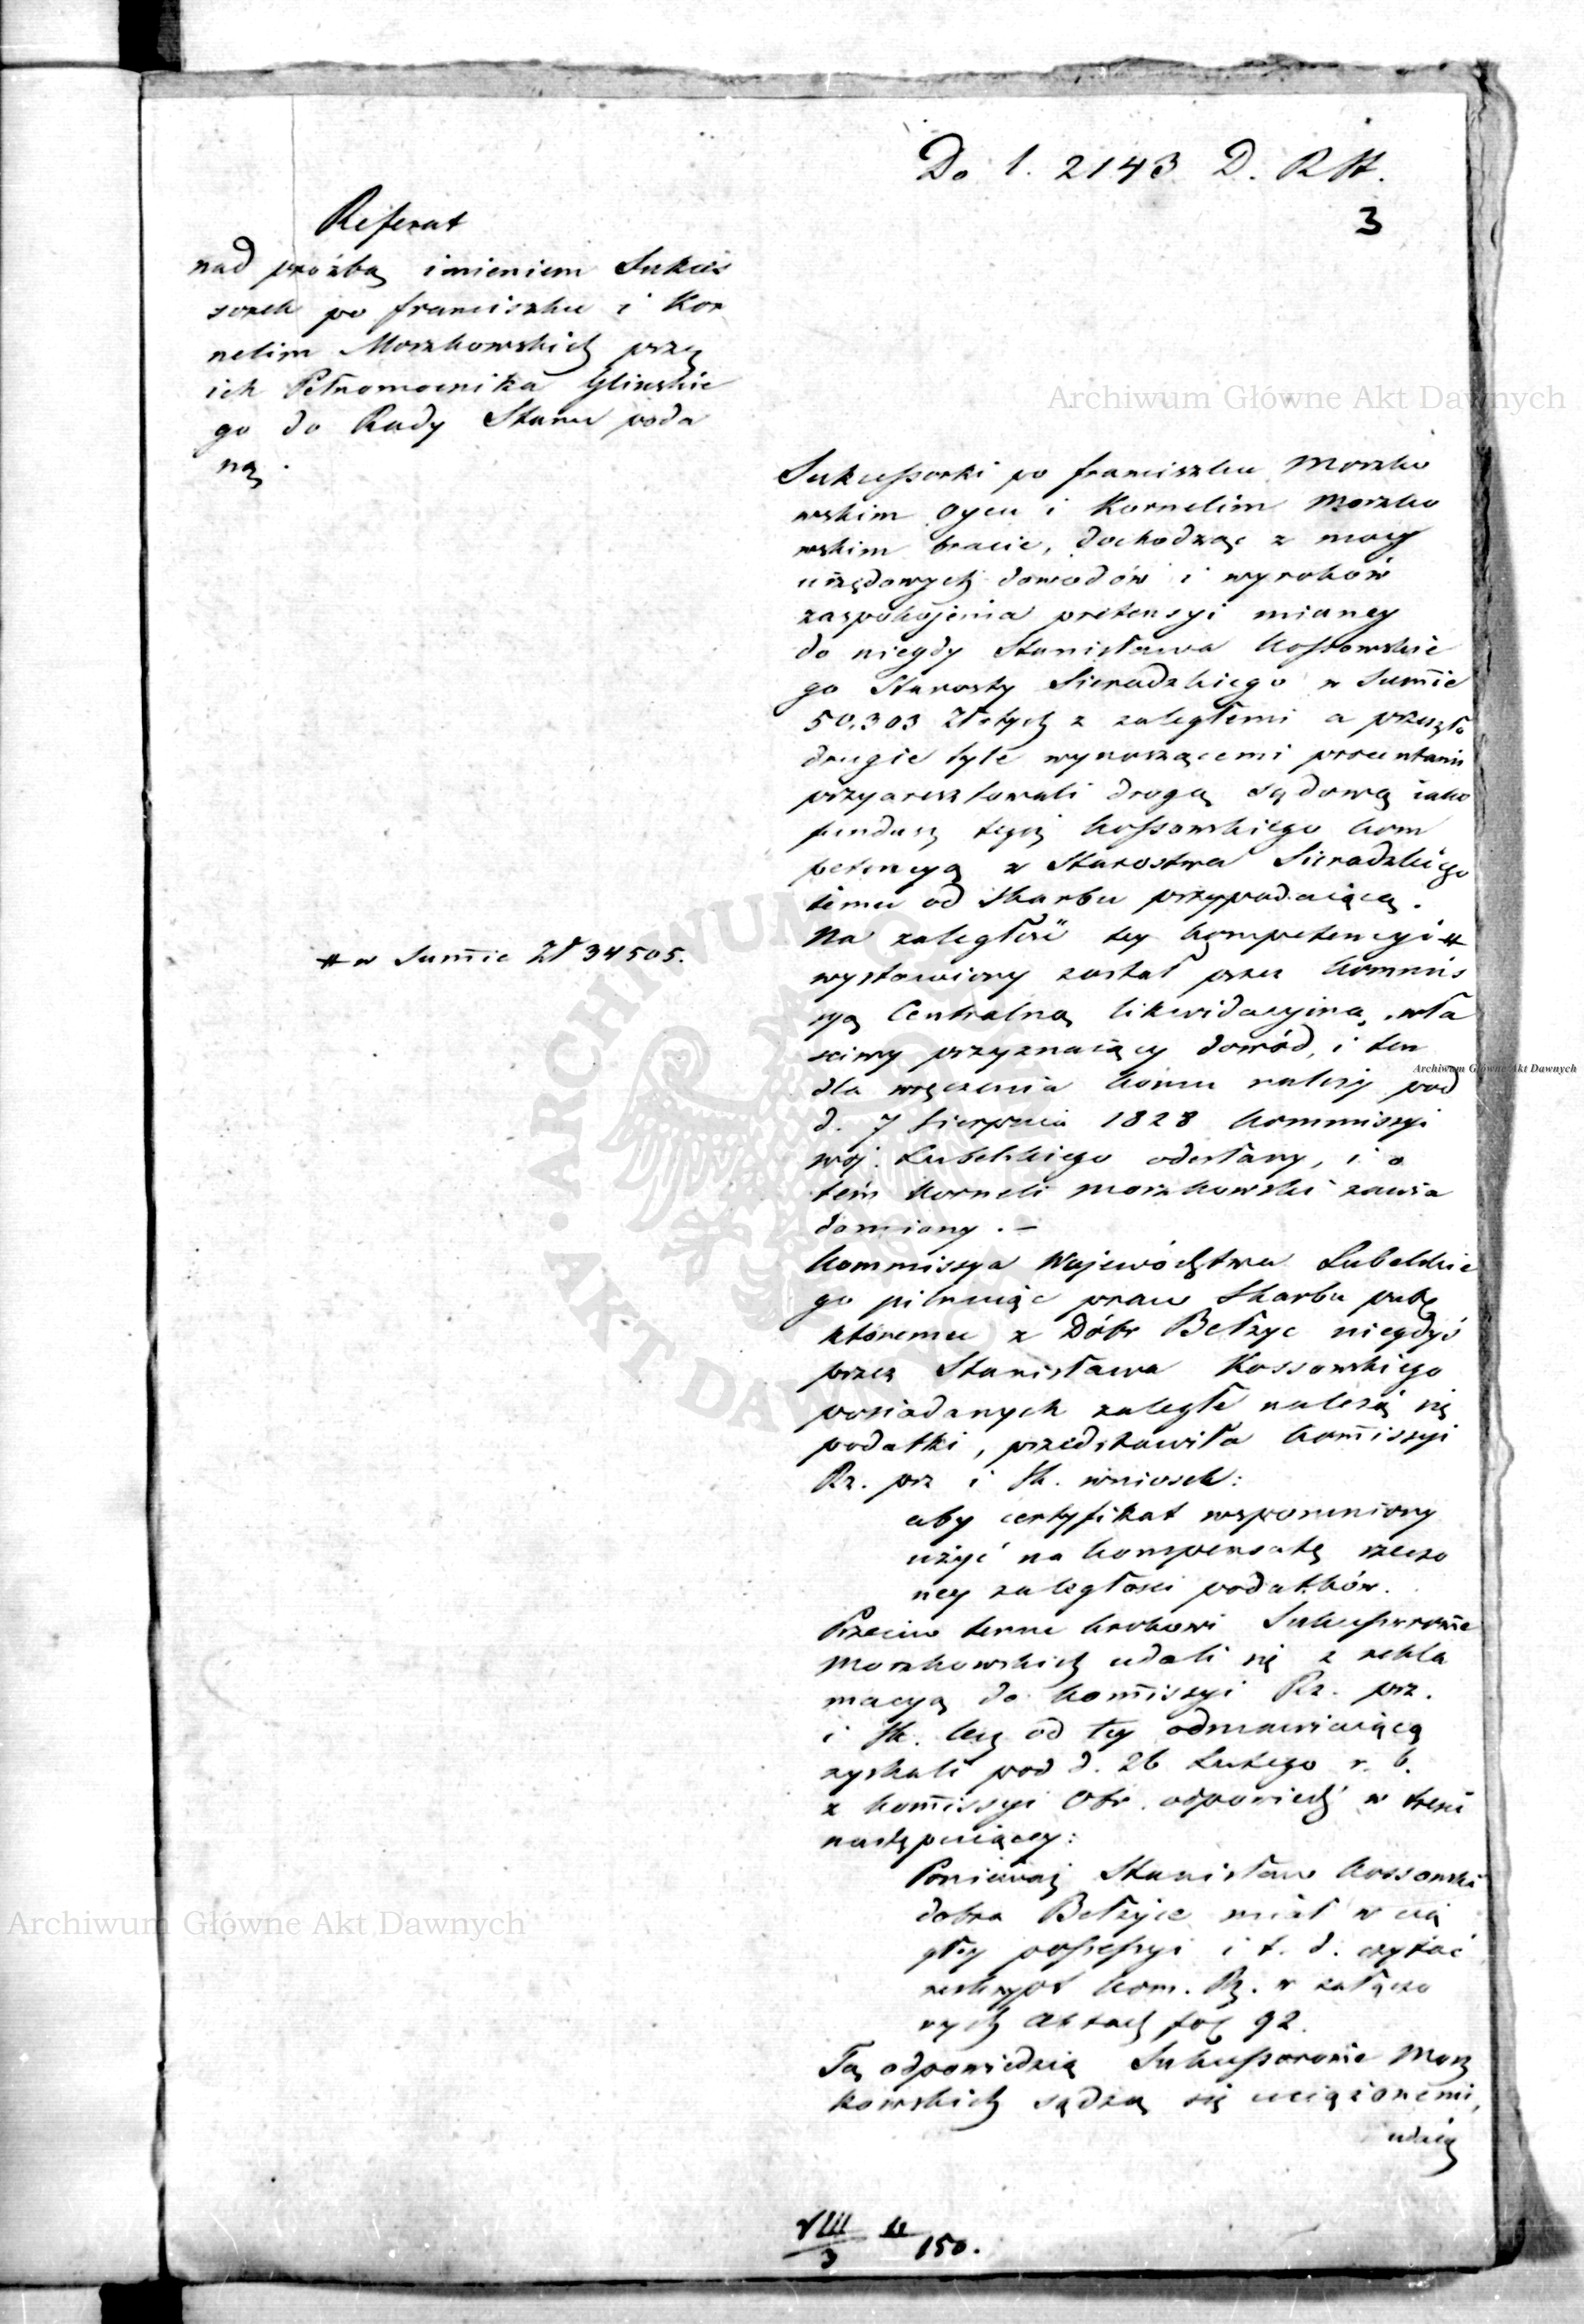 Do l. 2143 D. R St.
3
Referat
nad proźbą imieniem Sukces
sorek po franciszku i Kor
nelim Moszkowskich przez
ich Pełnomocnika Glinskie
go do Rady Stanu poda
ną.
Sukcessorki po franciszku Moszko
wskim Oycu i Kornelim Moszko
wskim bracie, dochodząc z mocy
urzędowych dowodów i wyroków
zaspokojenia pretensyi mianey
do niegdy Stanisława Kossowskie
go Starosty Sieradzkiego w Summie
50,303 Złotych z zaległemi a przeszło
drugie tyle wynoszącemi procentami
przyaresztowali drogą sądową iako
fundusz tegoż Kossowskiego kom
petencyą z Starostwa Sieradzkiego
temu od Skarbu przypadaiącą.
Na zaległość tey kompetencyi #
# w Summie Zł 34505.
wystawiony został przez Kommis
syą Centralną likwidacyjną, wła
sciwy przyznaiący dowód, i ten
dla wręczenia komu należy pod
d. 7 Sierpnia 1828 Kommissyi
woj. Lubelskiego odesłany, i o
tém Korneli Moszkowski zawia
domiony. —
Kommissya Województwa Lubelskie
go pilnuiąc praw Skarbu publ
któremu z Dóbr Bełżyc niegdyś
przez Stanisława Kossowskiego
posiadanych zaległe należą się
podatki, przedstawiła Kommissyi
Rz. prz i Sk. wniosek:
aby certyfikat wspomniony
użyć na kompensatę rzeczo
ney zaległosci podatków.
Przeciw temu krokowi Sukcessorowie
Moszkowskich udali się z rekla
macyą do Kommissyi Rz. prz.
i Sk. lecz od tey odmawiaiącą
zyskali pod d. 26 Lutego r. b.
z Kommissyi Obr. odpowiedź w treści
następuiącey:
Ponieważ Stanisław Kossowski
dobra Bełżyce miał w cią
głey possessyi i t. d. czytać
reskrypt Kom. Rz. w załączo
nych aktach fol 92.
Tą odpowiedzią Sukcessorowie Mosz
kowskich sądzą się uciążonemi,
udaią
VIII
3
150.
Archiwum Główne Akt Dawnych
Archiwum Główne Akt Dawnych
Archiwum Główne Akt Dawnych